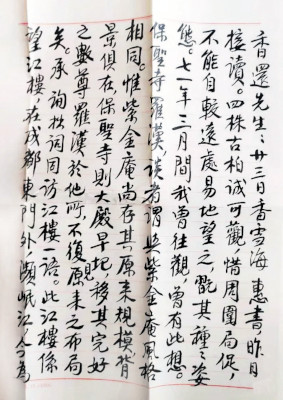 香還先生：廿三日香雪海惠書，昨日
接讀。四株古柏誠可觀，惜周圍局促，
不能自較遠處易地望之，翫其種種姿
態。七一年三月間我曾往觀，曾有此想。
保聖寺羅漢，談者謂與紫金庵風格
相同。惟紫金庵尚存其原來規模，背
景俱在，保聖寺則大廠早圮，移其完好
之數尊羅漢於他所，不復見原來之布局
矣。承詢拙詞因訪江樓一語。此江樓係
望江樓，在成都東門外，瀕岷江，今為